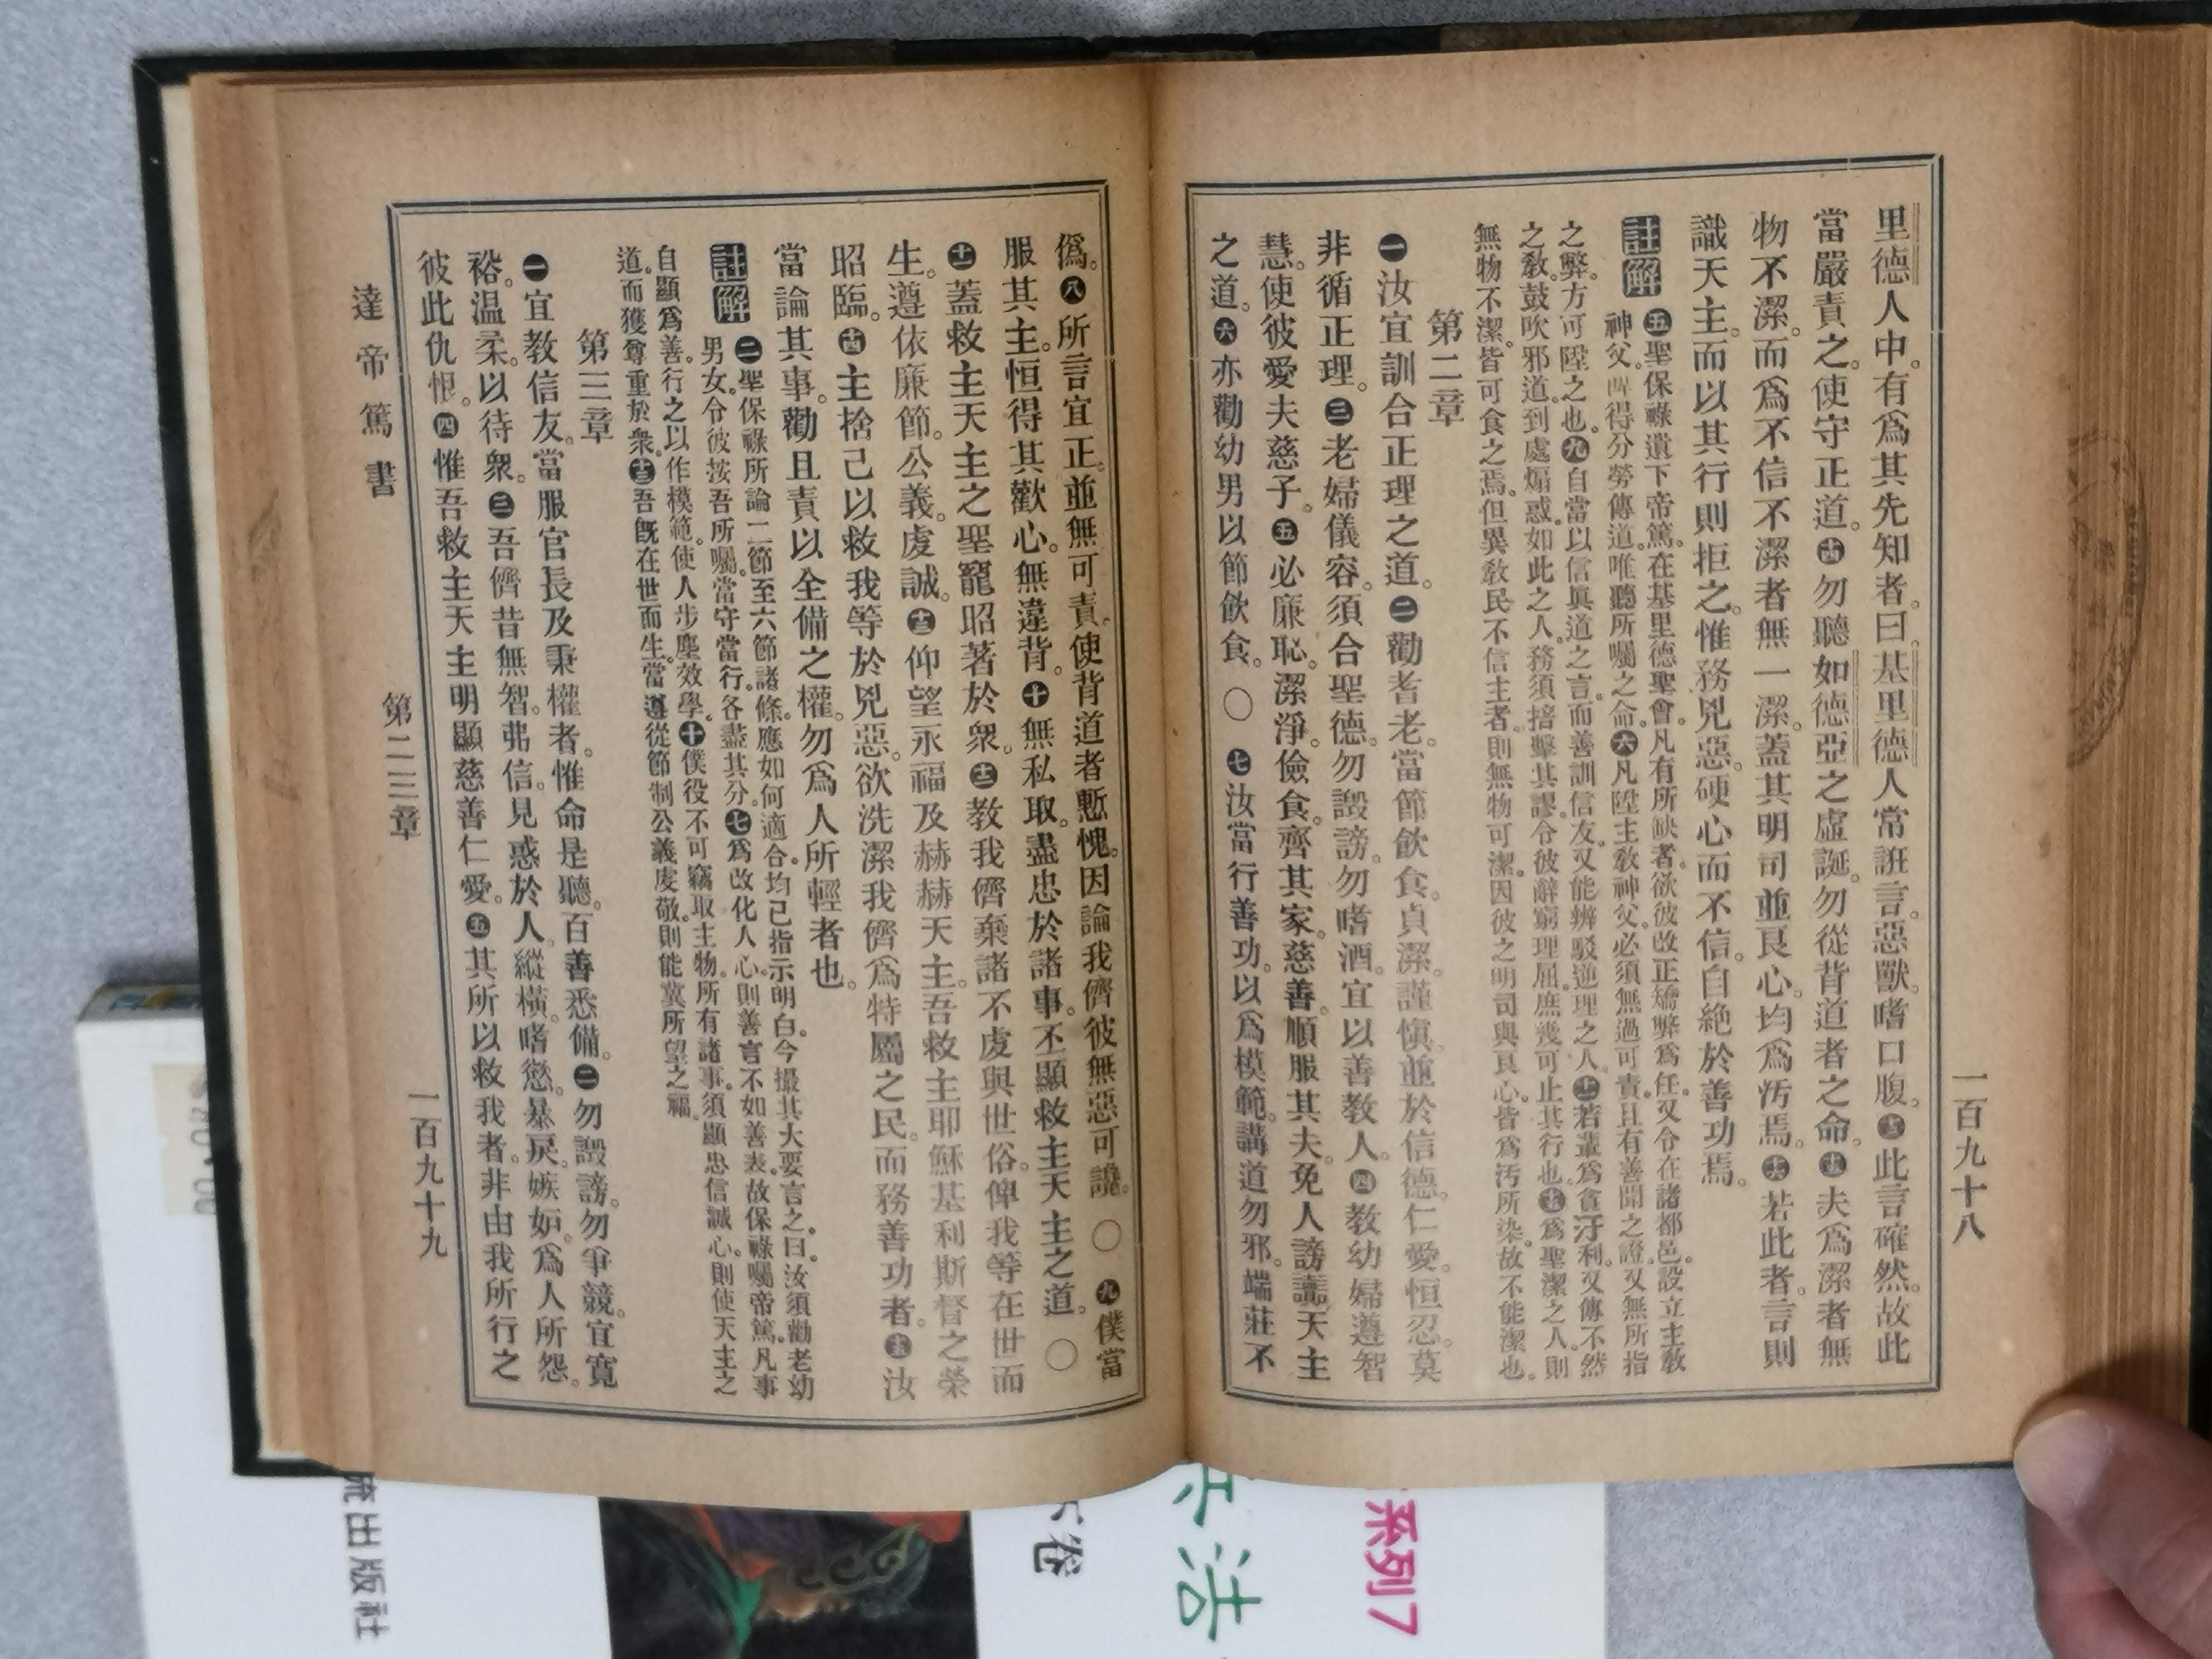 里德人中。有爲其先知者。曰。基里德人常誑言。惡獸。嗜口腹。⓭此言確然。故此
當嚴責之。使守正道。⓮勿聽如德亞之虛誕。勿從背道者之命。⓯夫爲潔者無
物不潔。而爲不信不潔者無一潔。蓋其明司並良心。均爲汚焉。⓰若此者。言則
識天主。而以其行則拒之。惟務兇惡。硬心而不信。自絶於善功焉。
註解
❺聖保祿遺下帝篤。在基里德聖會。凡有所缺者。欲彼改正矯弊爲任。又令在諸都邑。設立主敎
神父。俾得分勞傳道。唯聽所囑之命。❻凡陞主敎神父。必須無過可責。且有善聞之證。又無所指
之弊。方可陞之也。❾自當以信眞道之言。而善訓信友。又能辨駁逆理之人。⓫若輩爲貪汙利。又傳不然
之敎。鼓吹邪道。到處煽惑。如此之人。務須掊擊其謬。令彼辭窮理屈。庶幾可止其行也。⓯爲聖潔之人。則
無物不潔。皆可食之焉。但異敎民不信主者。則無物可潔。因彼之明司與良心。皆爲汚所染。故不能潔也。
第二章
❶汝宜訓合正理之道。❷勸耆老。當節飮食。貞潔。謹愼。並於信德。仁愛。恒忍。莫
非循正理。❸老婦儀容。須合聖德。勿譭謗。勿嗜酒。宜以善教人。❹教幼婦遵智
慧。使彼愛夫慈子。❺必廉恥。潔淨。儉食。齊其家。慈善。順服其夫。免人謗讟天主
之道。❻亦勸幼男以節飮食。○❼汝當行善功。以爲模範。講道勿邪。端莊不
一百九十八
僞。❽所言宜正。並無可責。使背道者慙愧。因論我儕彼無惡可譏。○❾僕當
服其主。恒得其歡心。無違背。❿無私取。盡忠於諸事。丕顯救主天主之道。○
⓫蓋救主天主之聖寵昭著於衆。⓬教我儕棄諸不虔與世俗。俾我等在世而
生。遵依廉節。公義。虔誠。⓭仰望永福及赫赫天主。吾救主耶穌基利斯督之榮
昭臨。⓮主捨己以救我等於兇惡。欲洗潔我儕。爲特屬之民。而務善功者。⓯汝
當論其事。勸且責以全備之權。勿爲人所輕者也。
註解
❷聖保祿所論二節至六節諸條。應如何適合。均己指示明白。今撮其大要言之。曰。汝須勸老幼
男女。令彼按吾所囑。當守當行。各盡其分。❼爲改化人心。則善言不如善表。故保祿囑帝篤。凡事
自顯爲善。行之以作模範。使人步塵效學。❿僕役不可竊取主物。所有諸事。須顯忠信誠心。則使天主之
道。而獲尊重於衆。⓬吾旣在世而生。當遵從節制公義虔敬。則能冀所望之福。
第三章
❶宜教信友。當服官長及秉權者。惟命是聽。百善悉備。❷勿譭謗。勿爭競。宜寬
裕。温柔。以待衆。❸吾儕昔無智。弗信。見惑於人。縱橫。嗜慾。暴戾。嫉妒。爲人所怨。
彼此仇恨。❹惟吾救主天主明顯慈善仁愛。❺其所以救我者。非由我所行之
達帝篤書
第二三章
一百九十九
流出版社
下卷
兵法
系列7